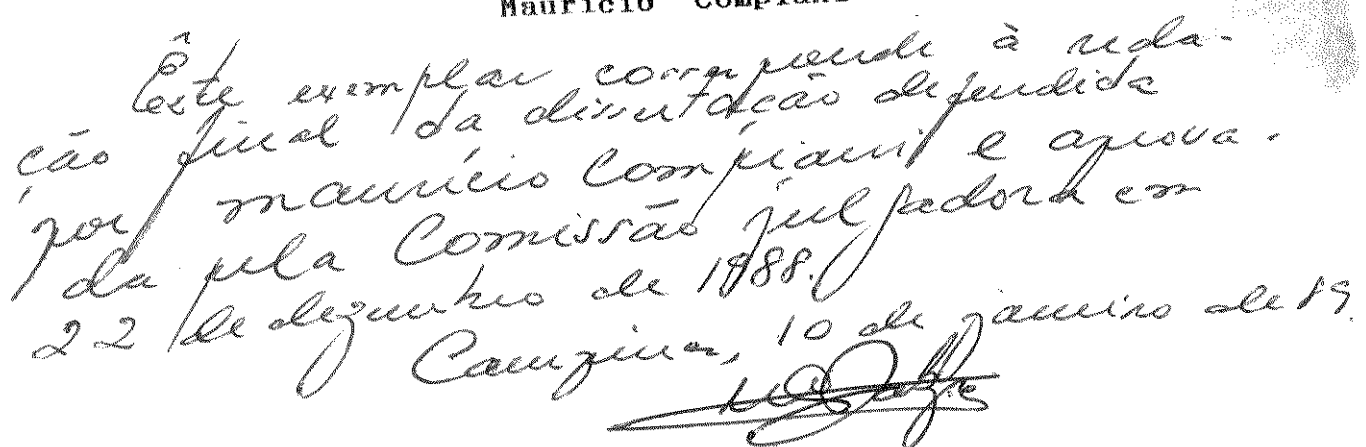 Mauricio Compiani
Êste exemplar corresponde à reda-
ção final da dissertação defendida
por maurício Compiani e aprova-
da pela Comissão julgadora em
22 de dezembro de 1988.
Campinas, 10 de janeiro de 89.